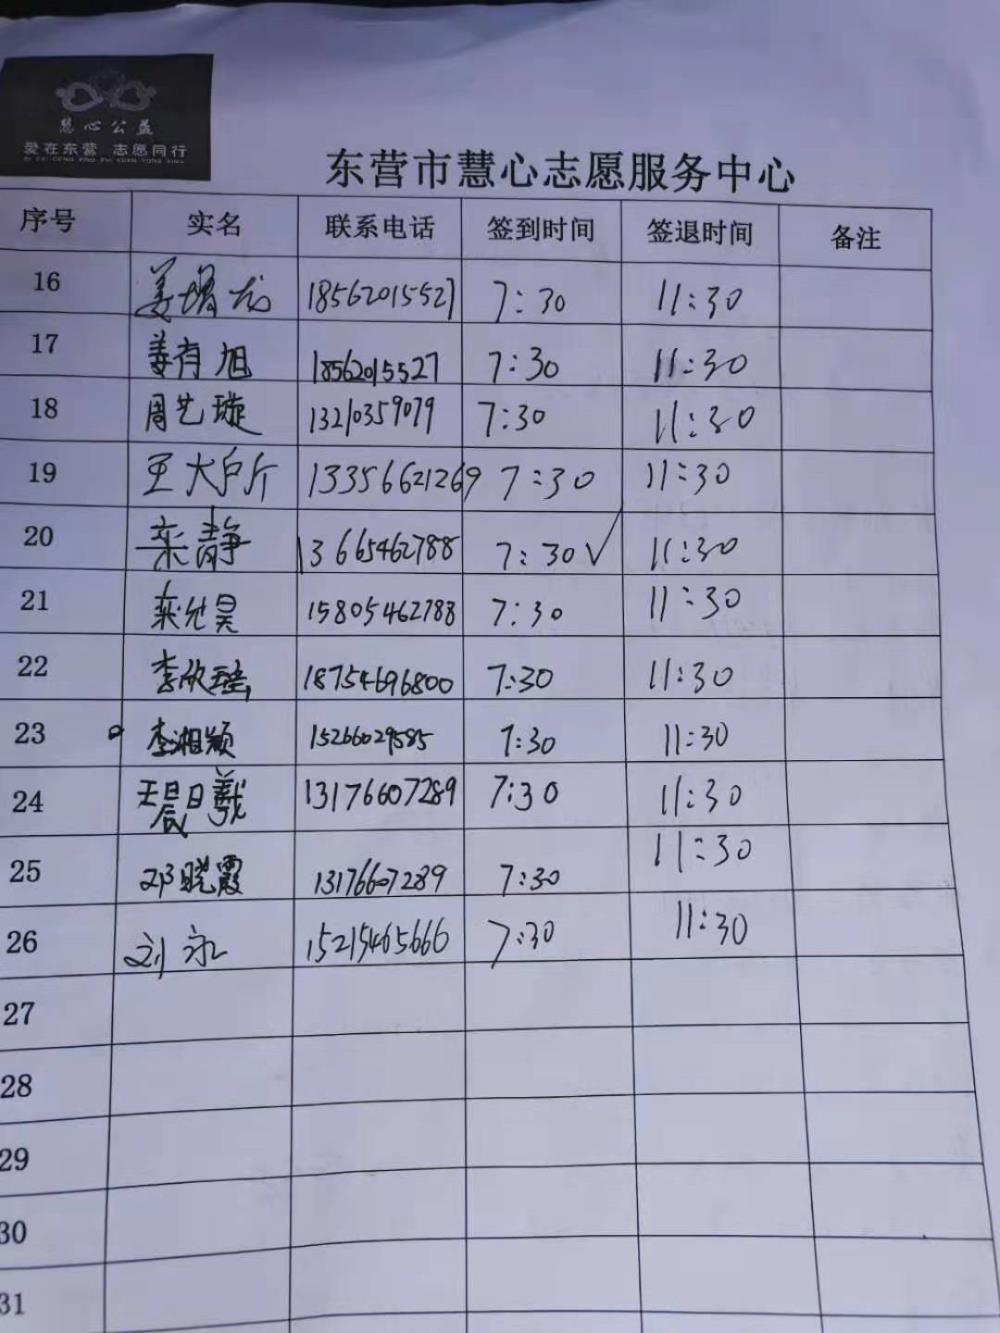 慧心公益
爱在东营 志愿同行
东营市慧心志愿服务中心
序号 实名 联系电话 签到时间 签退时间 备注
16 姜增龙 18562015527 7:30 11:30
17 姜有旭 18562015527 7:30 11:30
18 周艺璇 13210359079 7:30 11:30
19 王大 13356621269 7:30 11:30
20 栾静 13665462788 7:30√ 11:30
21 栾允昊 15805462788 7:30 11:30
22 李欣 18754696800 7:30 11:30
23 李湘颖 15266029585 7:30 11:30
24 王晨曦 13176607289 7:30 11:30
25 邓晓霞 13176607289 7:30 11:30
26 刘永 15215465666 7:30 11:30
27
28
29
30
31